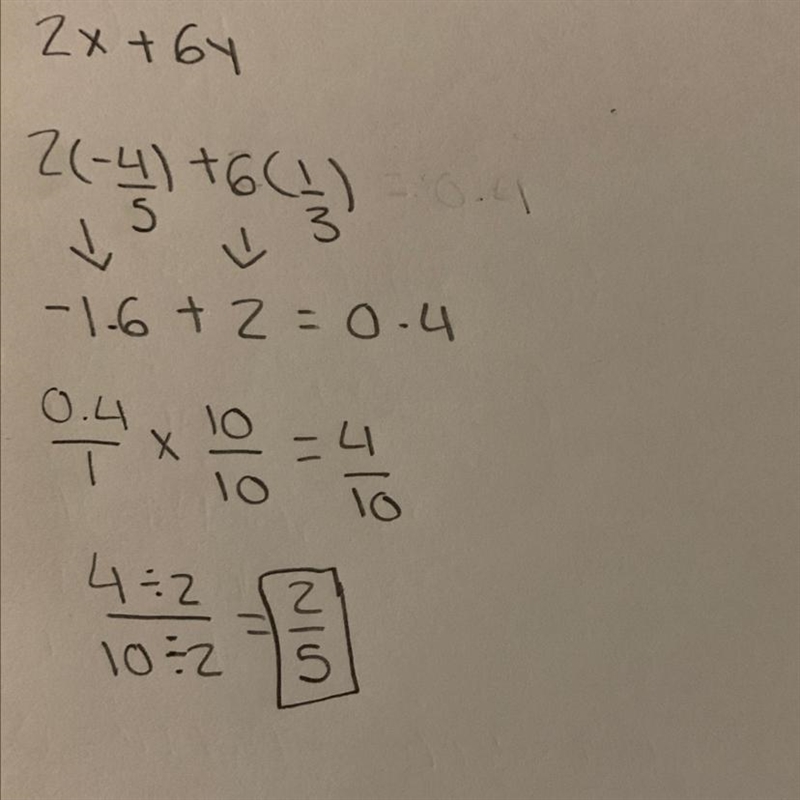 2x + 6y
2(-4/5) + 6(1/3) = 0.4
↓ ↓
-1.6 + 2 = 0.4
0.4/1 x 10/10 = 4/10
4÷2/10÷2 = 2/5